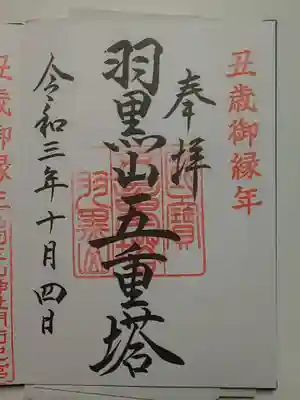 丑歳御縁年
奉拝
羽黒山五重塔
令和三年十月四日
丑歳御縁年
羽黒山